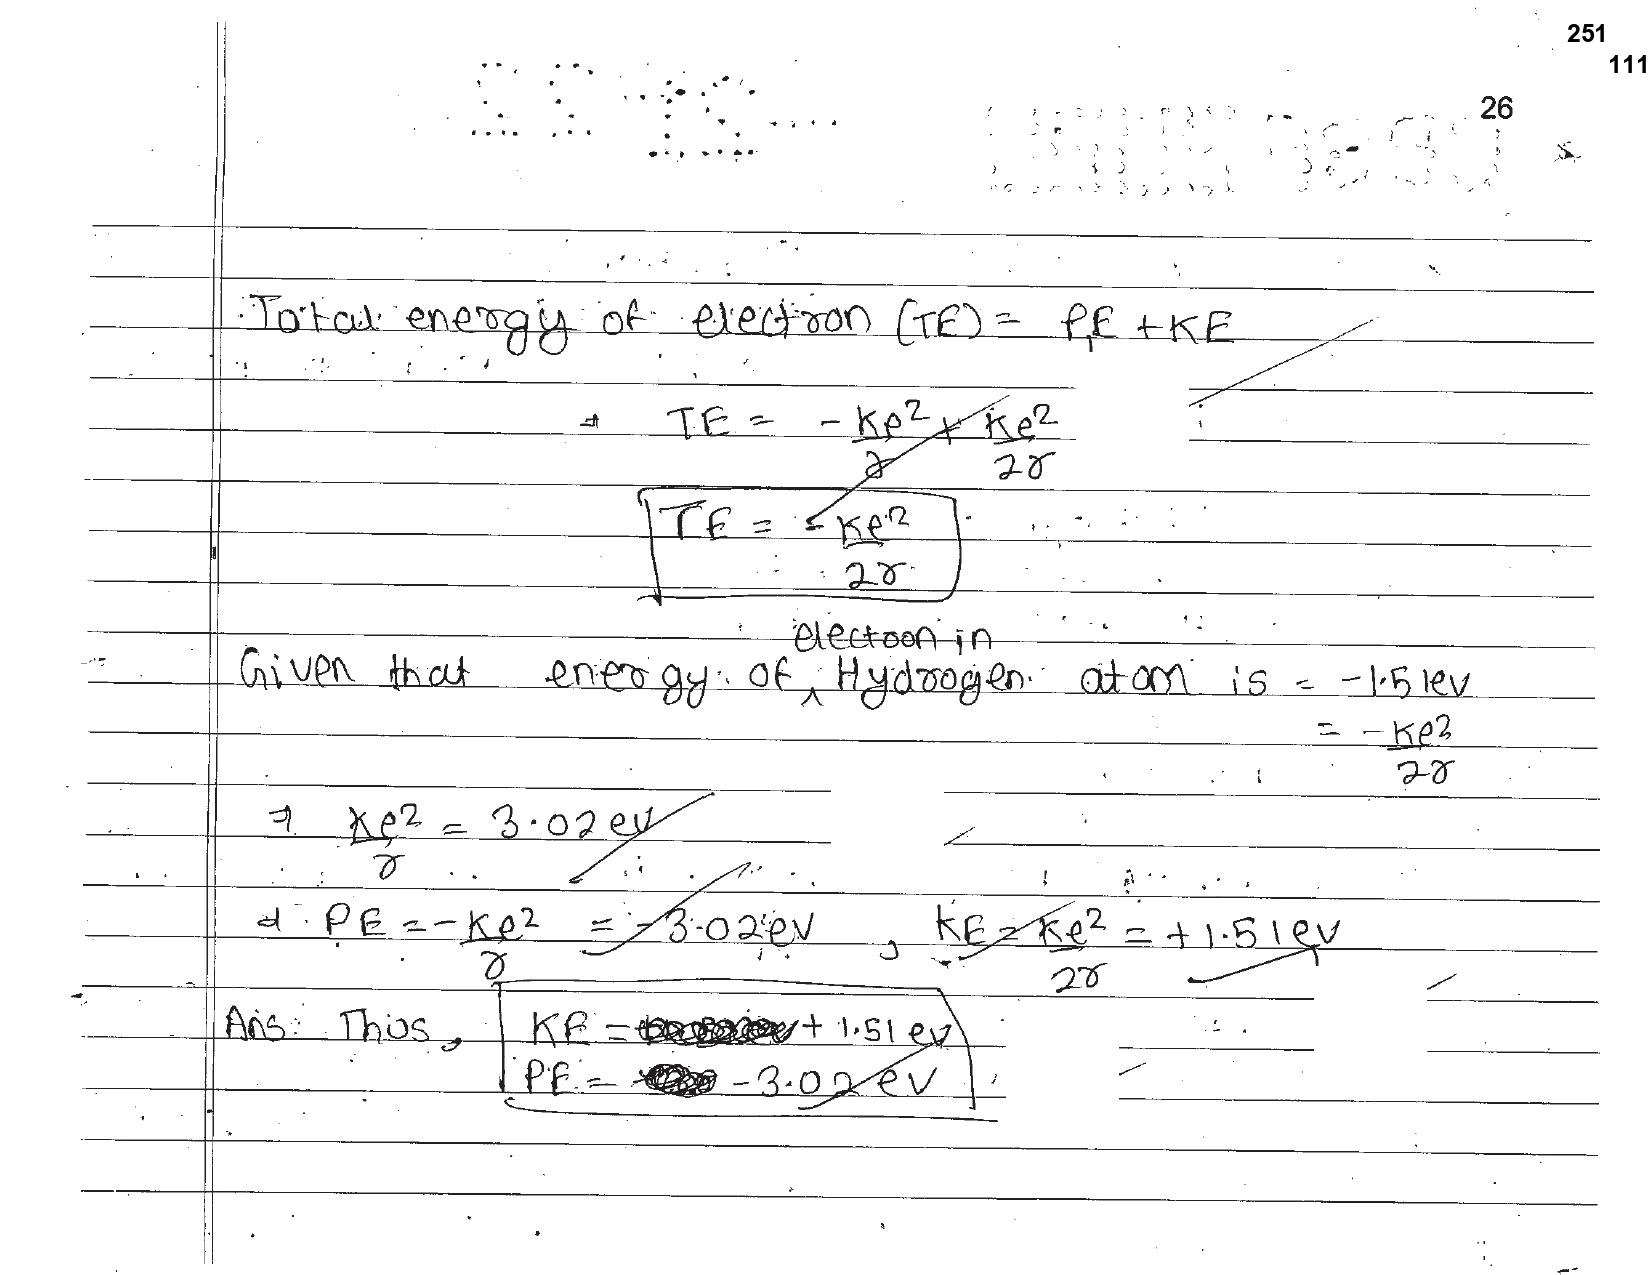 251
111
26
Total energy of electron (TE) = PE + KE
⇒ TE = - Ke² + Ke²
r 2r
TE = - Ke²
2r
electron in
Given that energy of ^ Hydrogen atom is = -1.51ev
= - Ke²
2r
⇒ Ke² = 3.02 ev
r
⇒ PE = - Ke² = -3.02 ev , KE = Ke² = +1.51 ev
r 2r
Ans: Thus, KE = + 1.51 ev
PE = -3.02 ev